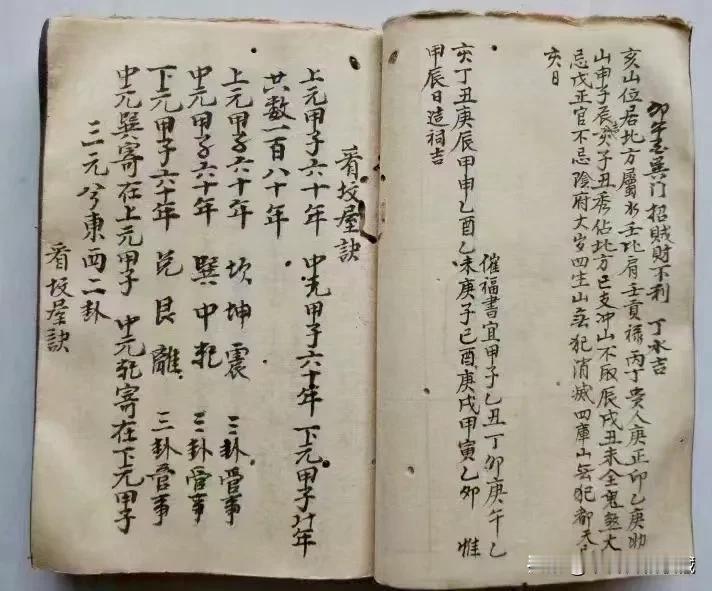 卯午至巽门招贼财不利 丁水吉
亥山位居北方屬水壬比肩壬貢禄丙丁貴人庚正卯乙庚助
山申子辰亥子丑秀佔北方巳支冲山不取辰戌丑未全鬼煞大
忌戊正官不忌陰府大岁四生山無犯消滅四庫山無犯都天
亥日
催福書宜甲子乙丑丁卯庚午乙
亥丁丑庚辰甲申乙酉乙未庚子己酉庚戌甲寅乙卯 惟
甲辰日造祠吉
看坟屋訣
上元甲子六十年 中元甲子六十年 下元甲子六十年
共数一百八十年
上元甲子六十年 坎坤震 三卦管事
中元甲子六十年 巽中乾 三卦管事
下元甲子六十年 兑艮離 三卦管事
中元巽寄在上元甲子 中元乾寄在下元甲子
三元兮東西二卦
看坟屋訣